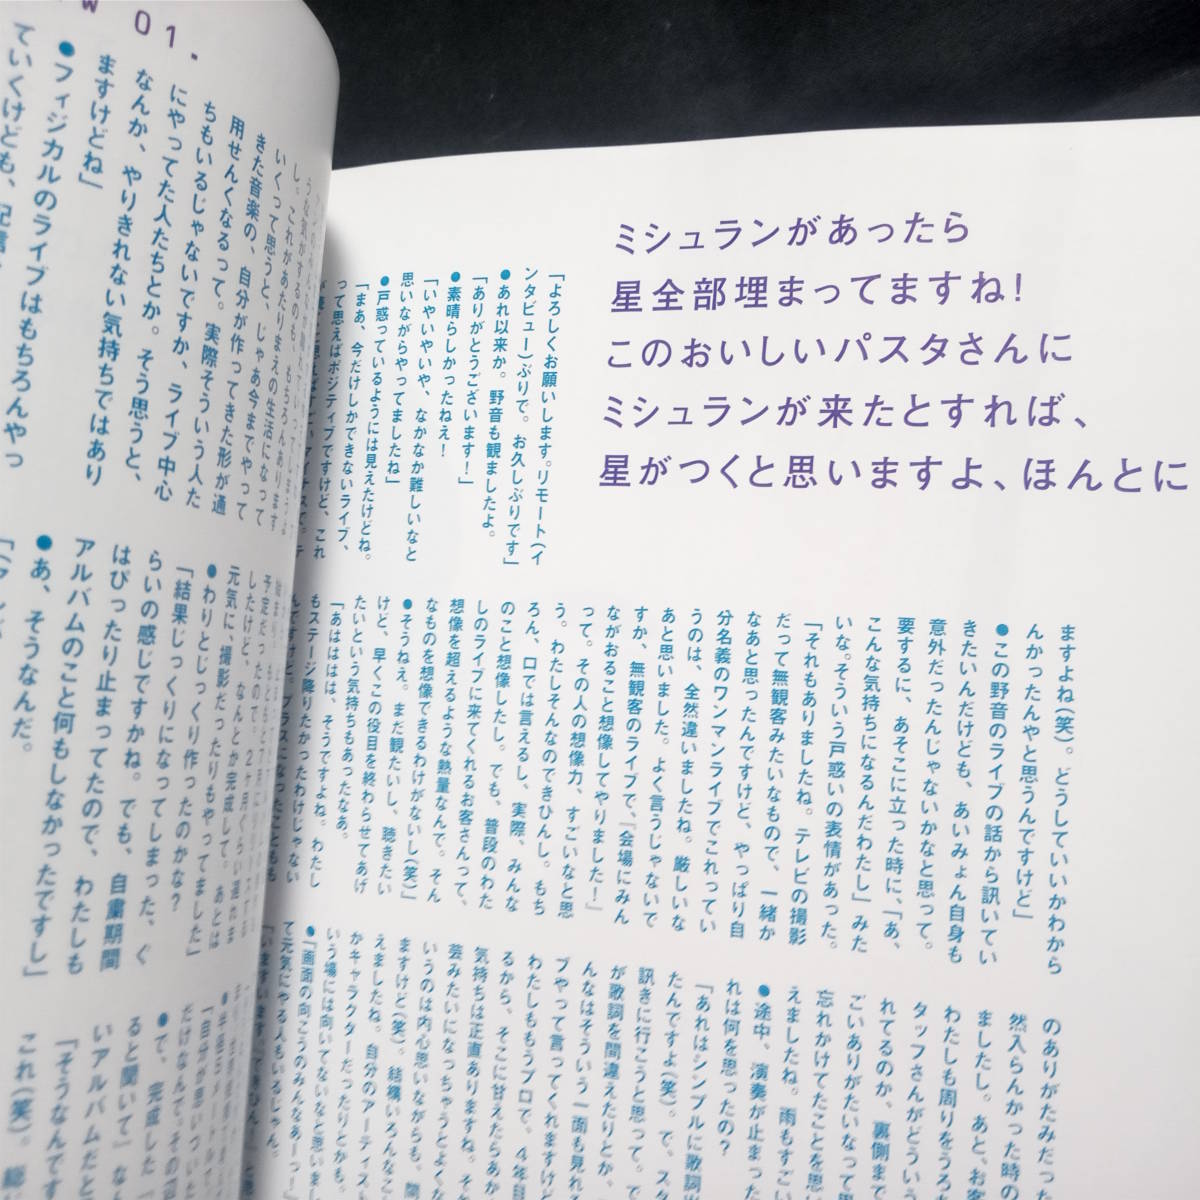 ミシュランがあったら
星全部埋まってますね!
このおいしいパスタさんに
ミシュランが来たとすれば、
星がつくと思いますよ、ほんとに
「よろしくお願いします。リモート(イ
ンタビュー)ぶりで。お久しぶりです」
●あれ以来か。野音も観ましたよ。
「ありがとうございます!」
●素晴らしかったねえ!
「いやいやいや、なかなか難しいなと
思いながらやってましたね」
●戸惑っているようには見えたけどね。
「まあ、今だけしかできないライブ、
って思えばポジティブですけど、これ
ますよね(笑)。どうしていいかわから
んかったんやと思うんですけど」
●この野音のライブの話から訊いてい
きたいんだけども、あいみょん自身も
意外だったんじゃないかなと思って。
要するに、あそこに立った時に、「あ、
こんな気持ちになるんだわたし」みた
いな。そういう戸惑いの表情があった。
「それもありましたね。テレビの撮影
だって無観客みたいなもので、一緒か
なあと思ったんですけど、やっぱり自
分名義のワンマンライブでこれってい
うのは、全然違いましたね。厳しいな
あと思いました。よく言うじゃないで
すか、無観客のライブで、「会場にみん
ながおること想像してやりました!」
って。その人の想像力、すごいなと思
う。わたしそんなのできひんし。もち
ろん、口では言えるし、実際、みんな
のこと想像したし。でも、普段のわた
しのライブに来てくれるお客さんって、
想像を超えるような熱量なんで。そん
なものを想像できるわけがないし(笑)」
●そうねえ。まだ観たいし、聴きたい
けど、早くこの役目を終わらせてあげ
たいという気持ちもあったなあ。
「あははは、そうですよね。わたし
もステージ降りたかったわけじゃない
んですけど、プラスになったことも
のありがたみだっ
然入らんかった時の
ましたし。あと、お客
わたしも周りをうる
タッフさんがどういう
れてるのか、裏側ま
ごいありがたいなっ
忘れかけてたことを思い
えましたね。雨もすご
●途中、演奏が止まっ
れは何を思ったの?
「あれはシンプルに歌詞
たんですよ(笑)。で、ス
訊きに行こうと思って。
が歌詞を間違えたりとか、
んなはそういう一面も見れ
プやって言ってくれますけど
わたしもうプロで、4年目
るから、そこに甘えたらあか
気持ちは正直ありますよね。そ
芸みたいになっちゃうとよくな
いうのは内心思いながらも、間
ますけど(笑)。結構いろんなこ
えましたね。自分のアーティス
かキャラクターだったりとかも。
いう場には向いてないなと思いま
●「画面の向こうのみんなあーっ!
て元気にやる人もいるじゃん。
W 01.
いくって思うと、じゃあ今までやって
きた音楽の、自分が作ってきた形が通
用せんくなるって。実際そういう人た
ちもいるじゃないですか、ライブ中心
にやってた人たちとか。そう思うと、
なんか、やりきれない気持ちではあり
ますけどね」
●フィジカルのライブはもちろんやっ
ていくけども、配信
予定だったので。2ヶ月ぐらい遅れま
したけど、なんとか完成して。あとは
元気に、撮影だったりもやってました」
●わりとじっくり作ったのかな?
「結果じっくりになってしまった、ぐ
らいの感じですかね。でも、自粛期間
はぴったり止まってたので、わたしも
アルバムのこと何もしなかったですし」
●あ、そうなんだ。
だけなんで。その
●で、完成した
ると聞いて」な
いアルバムだと
「そうなんです
これ(笑)。